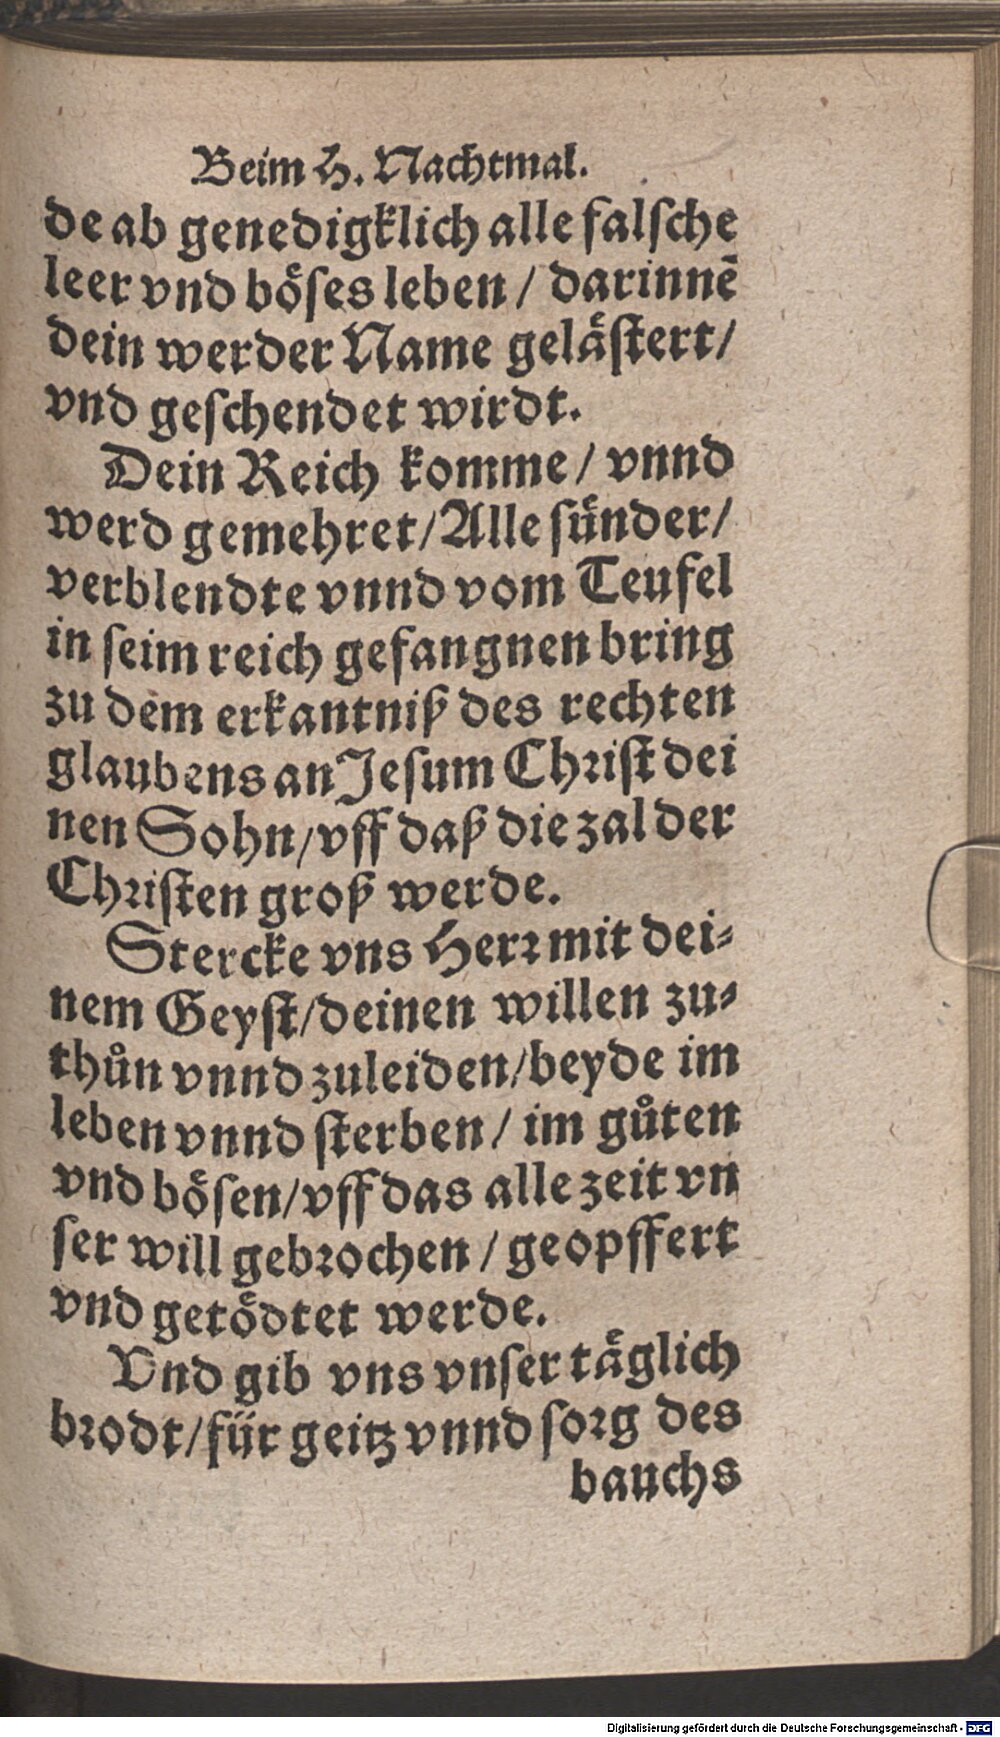 Beim H. Nachtmal.
de ab genedigklich alle falsche
leer vnd böses leben / darinnē
dein werder Name gelästert /
vnd geschendet wirdt.
Dein Reich komme / vnnd
werd gemehret / Alle sünder /
verblendte vnnd vom Teufel
in seim reich gefangnen bring
zu dem erkantniß des rechten
glaubens an Jesum Christ dei
nen Sohn / vff daß die zal der
Christen groß werde.
Stercke vns Herr mit dei-
nem Geyst / deinen willen zu-
thůn vnnd zuleiden / beyde im
leben vnnd sterben / im gůten
vnd bösen / vff das alle zeit vn
ser will gebrochen / geopffert
vnd getödtet werde.
Vnd gib vns vnser täglich
brodt / für geitz vnnd sorg des
bauchs
Digitalisierung gefördert durch die Deutsche Forschungsgemeinschaft - DFG